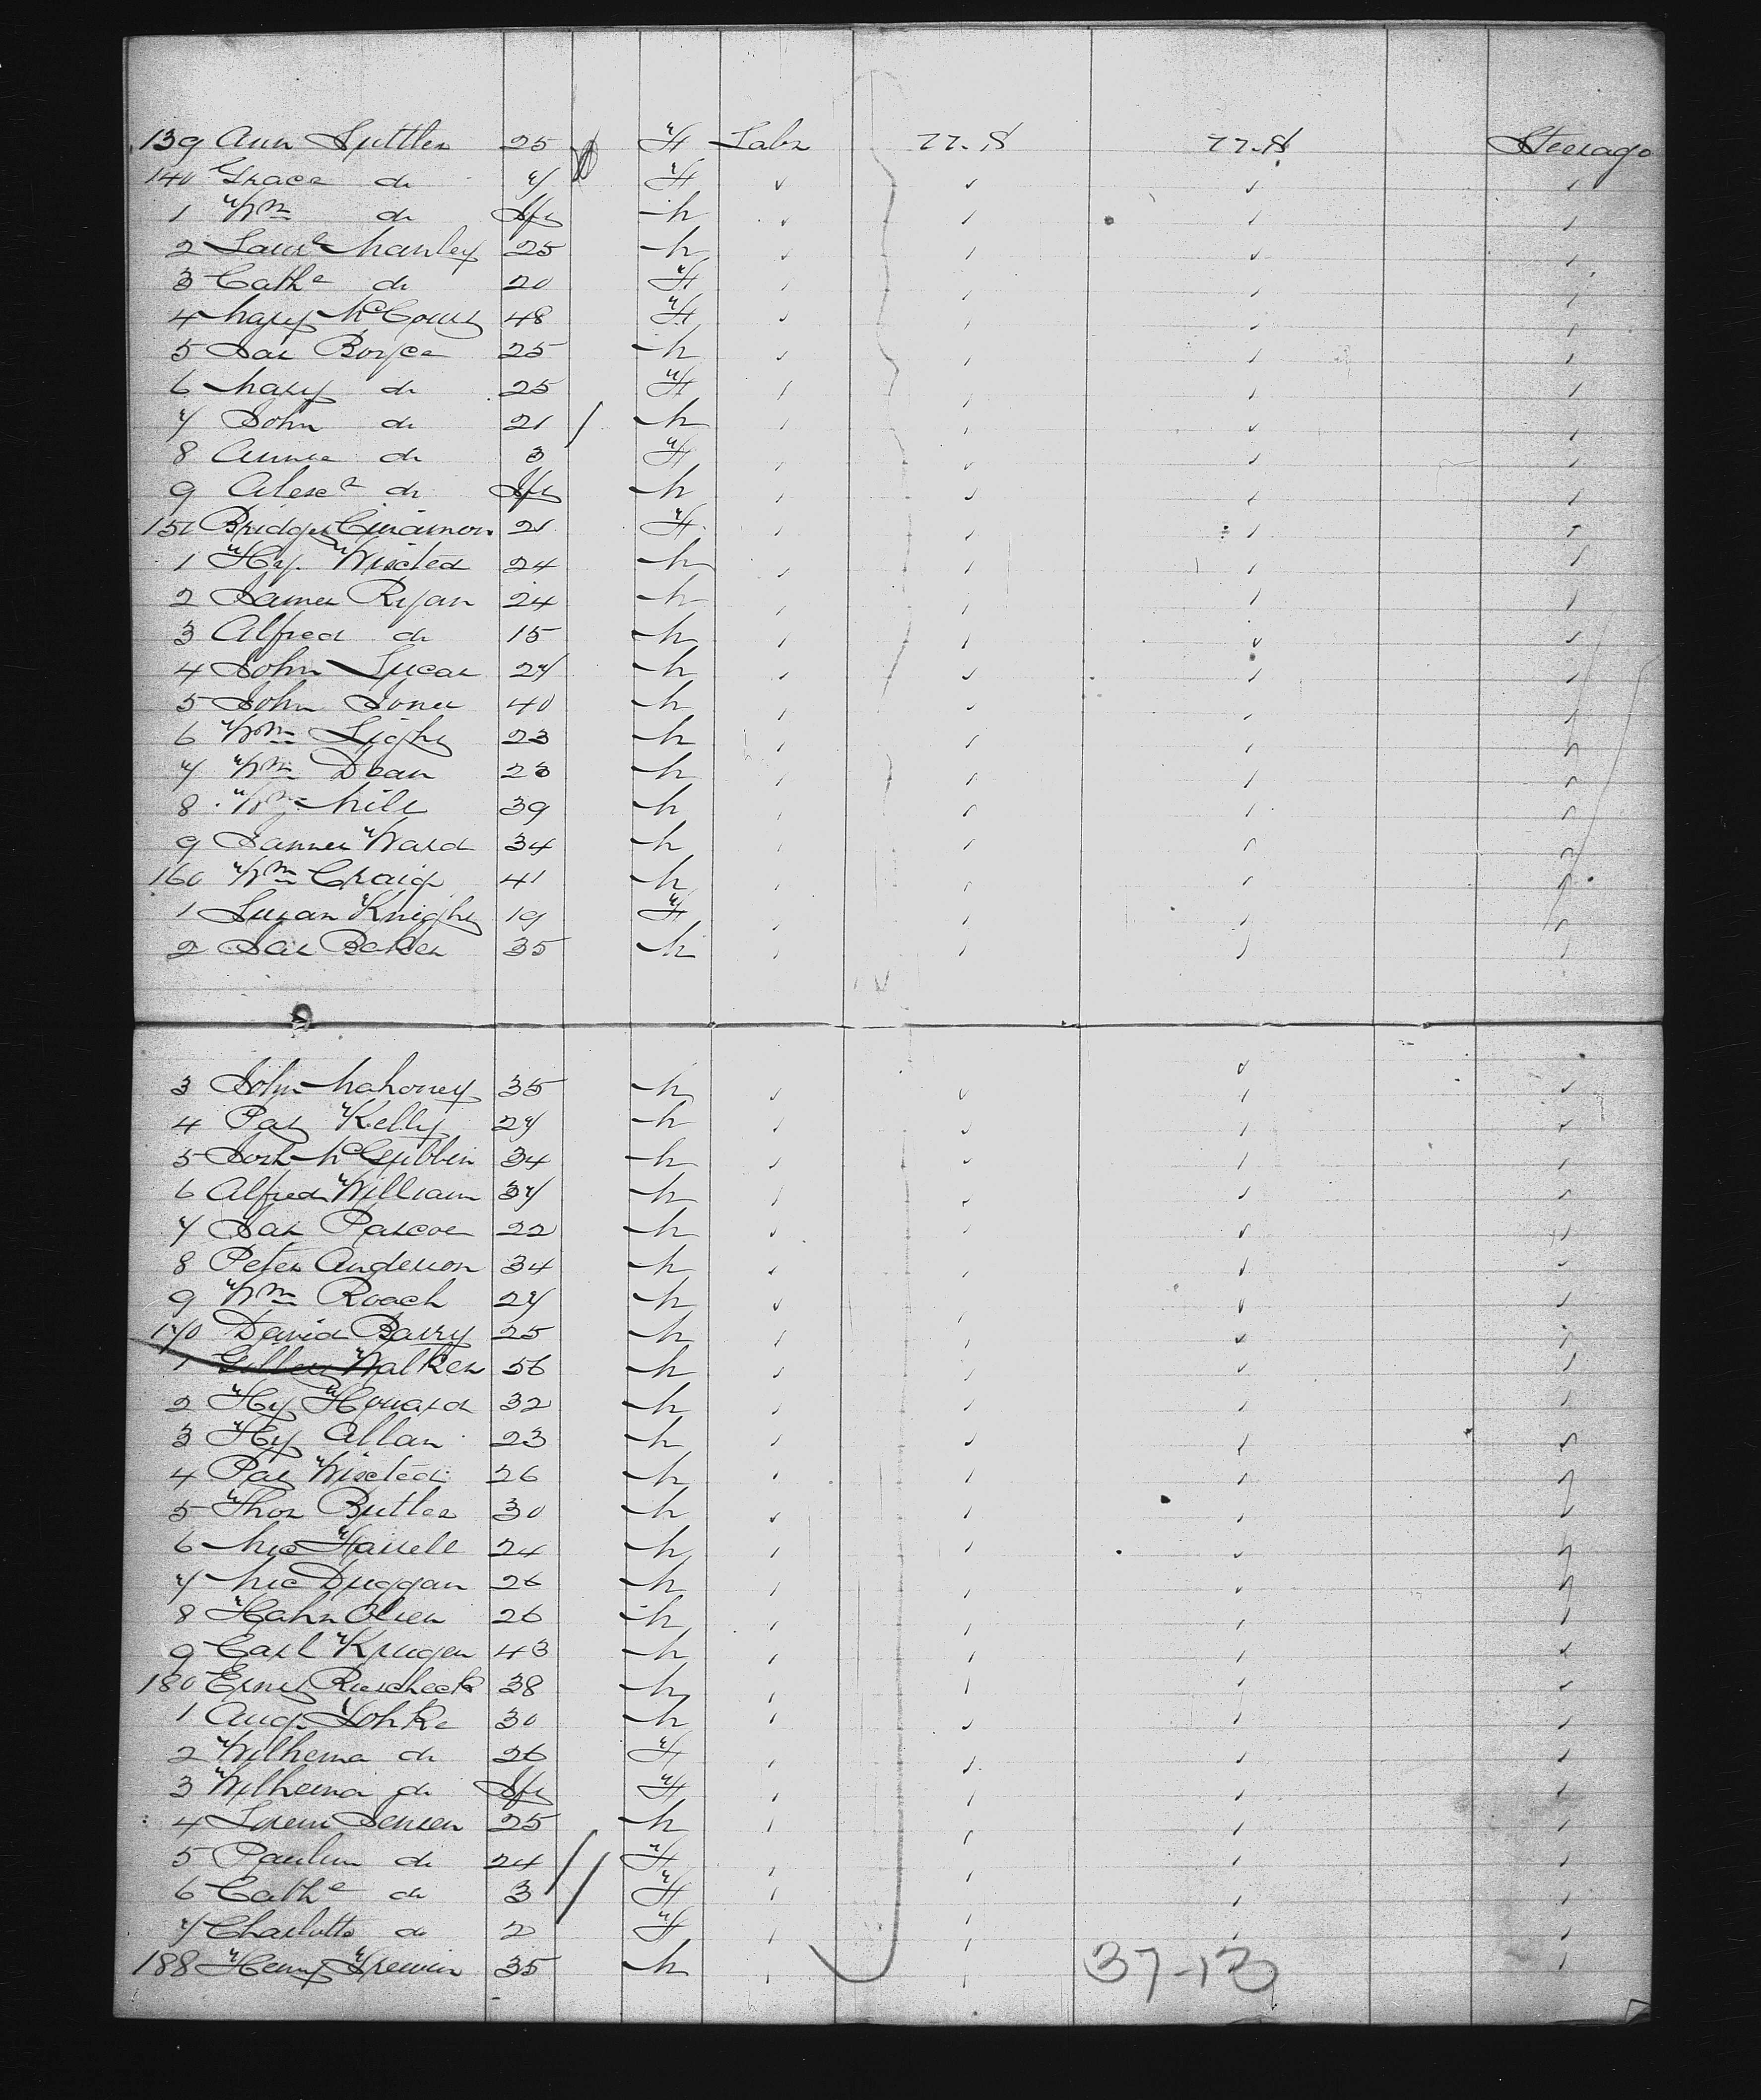 139 Ann Suttler 25 F Labr U.S. U.S. Steerage
140 Grace do 7 F
1 Wm do Inf M
2 Saml Manley 25 M
3 Cathe do 20 F
4 Mary McCourt 48 F
5 Jas Boyce 25 M
6 Mary do 25 F
7 John do 21 M
8 Annie do 3 F
9 Alexr do Inf M
150 Bridget Cinamon 21 F
1 Hy. Wixted 24 M
2 James Ryan 24 M
3 Alfred do 15 M
4 John Lucas 27 M
5 John Jones 40 M
6 Wm Light 23 M
7 Wm Dean 23 M
8 Wm Mill 39 M
9 James Ward 34 M
160 Wm Craig 41 M
1 Susan Knight 19 F
2 Jas Baker 35 M
3 John Mahoney 35 M
4 Pat Kelly 27 M
5 Josh McGibbin 34 M
6 Alfred William 37 M
7 Jas Pascoe 22 M
8 Peter Anderson 34 M
9 Wm Roach 27 M
170 David Barry 25 M
1 Walker 56 M
2 Hy Howard 32 M
3 Hy Allan 23 M
4 Pat Wixted 26 M
5 Thos Butler 30 M
6 Mic Farrell 24 M
7 Mic Duggan 26 M
8 Hahn Olsen 26 M
9 Carl Kruger 43 M
180 Ernst 38 M
1 Aug. Tohke 30 M
2 Wilhema do 26 F
3 Wilhema do Inf F
4 Jensen 25 M
5 Paulin do 24 F
6 Cathe do 3 F
7 Charlotte do 2 F
188 Henry 35 M
37-13